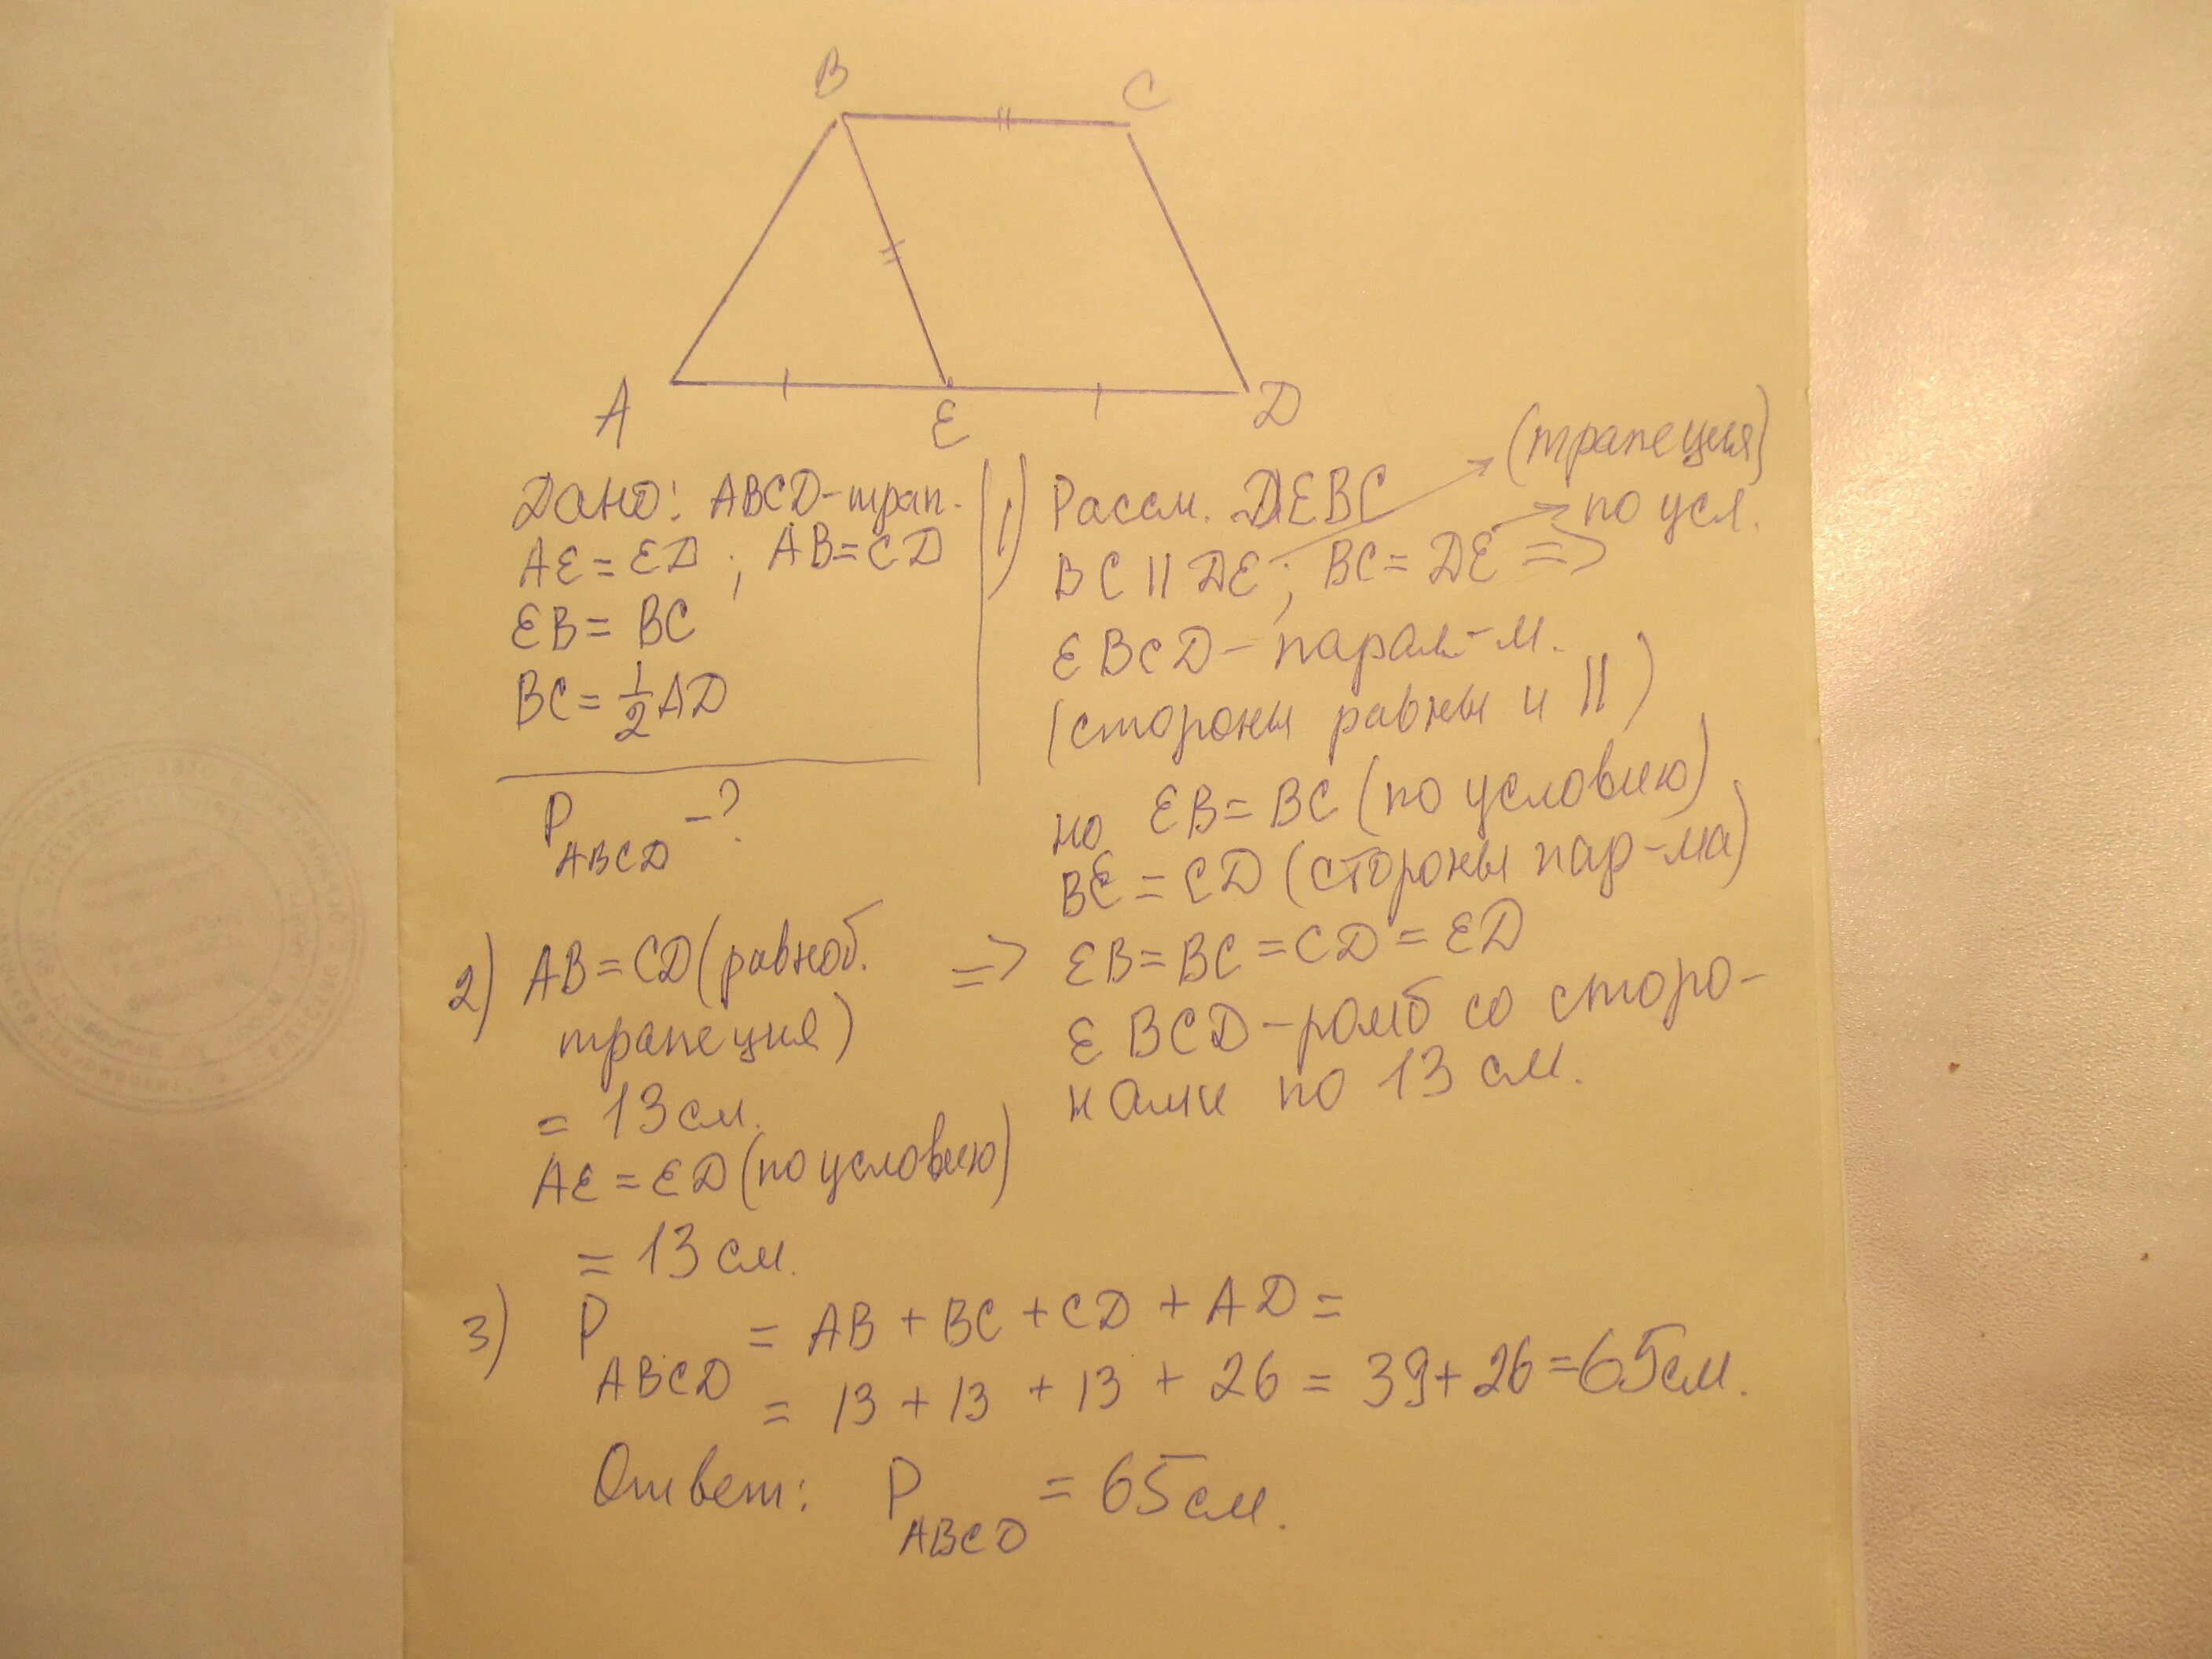 B C
A E D
Дано: ABCD-трап.
AE = ED ; AB = CD
EB = BC
BC = 1/2 AD
P ABCD -?
1) Рассм. DEBC
(трапеция)
BC || DE ; BC = DE =>
по усл.
EBCD - парал-м.
(стороны равны и ||)
но EB = BC (по условию)
BE = CD (стороны пар-ма)
=> EB = BC = CD = ED
EBCD - ромб со сторо-
нами по 13 см.
2) AB = CD (равноб.
трапеция)
= 13 см.
AE = ED (по условию)
= 13 см.
3) P ABCD = AB + BC + CD + AD =
= 13 + 13 + 13 + 26 = 39 + 26 = 65 см.
Ответ: P ABCD = 65 см.